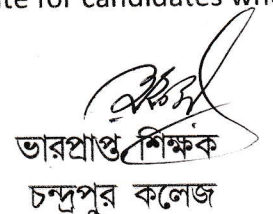 for candidates
ভারপ্রাপ্ত শিক্ষক
চন্দ্রপুর কলেজ